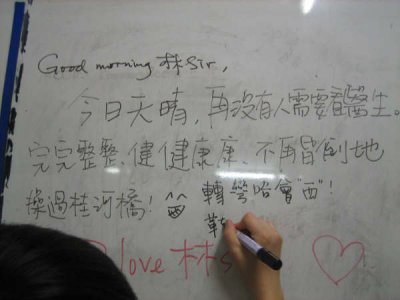 Good morning 林Sir,
今日天晴,再沒有人需要看醫生。
完完整整、健健康康、不再暈倒地
操過桂河橋! 轉彎唔會"西"!
love 林s